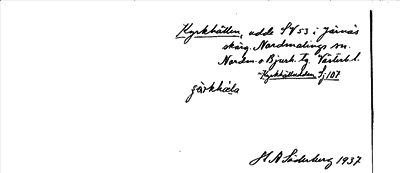 Kyrkhällen, udde SV 53 i Järnäs
skärg. Nordmalings sn.
Nordm. o Bjurh. tg. Västerb. l.
Kyrkhälludden Sj 107
H A Söderberg 1937